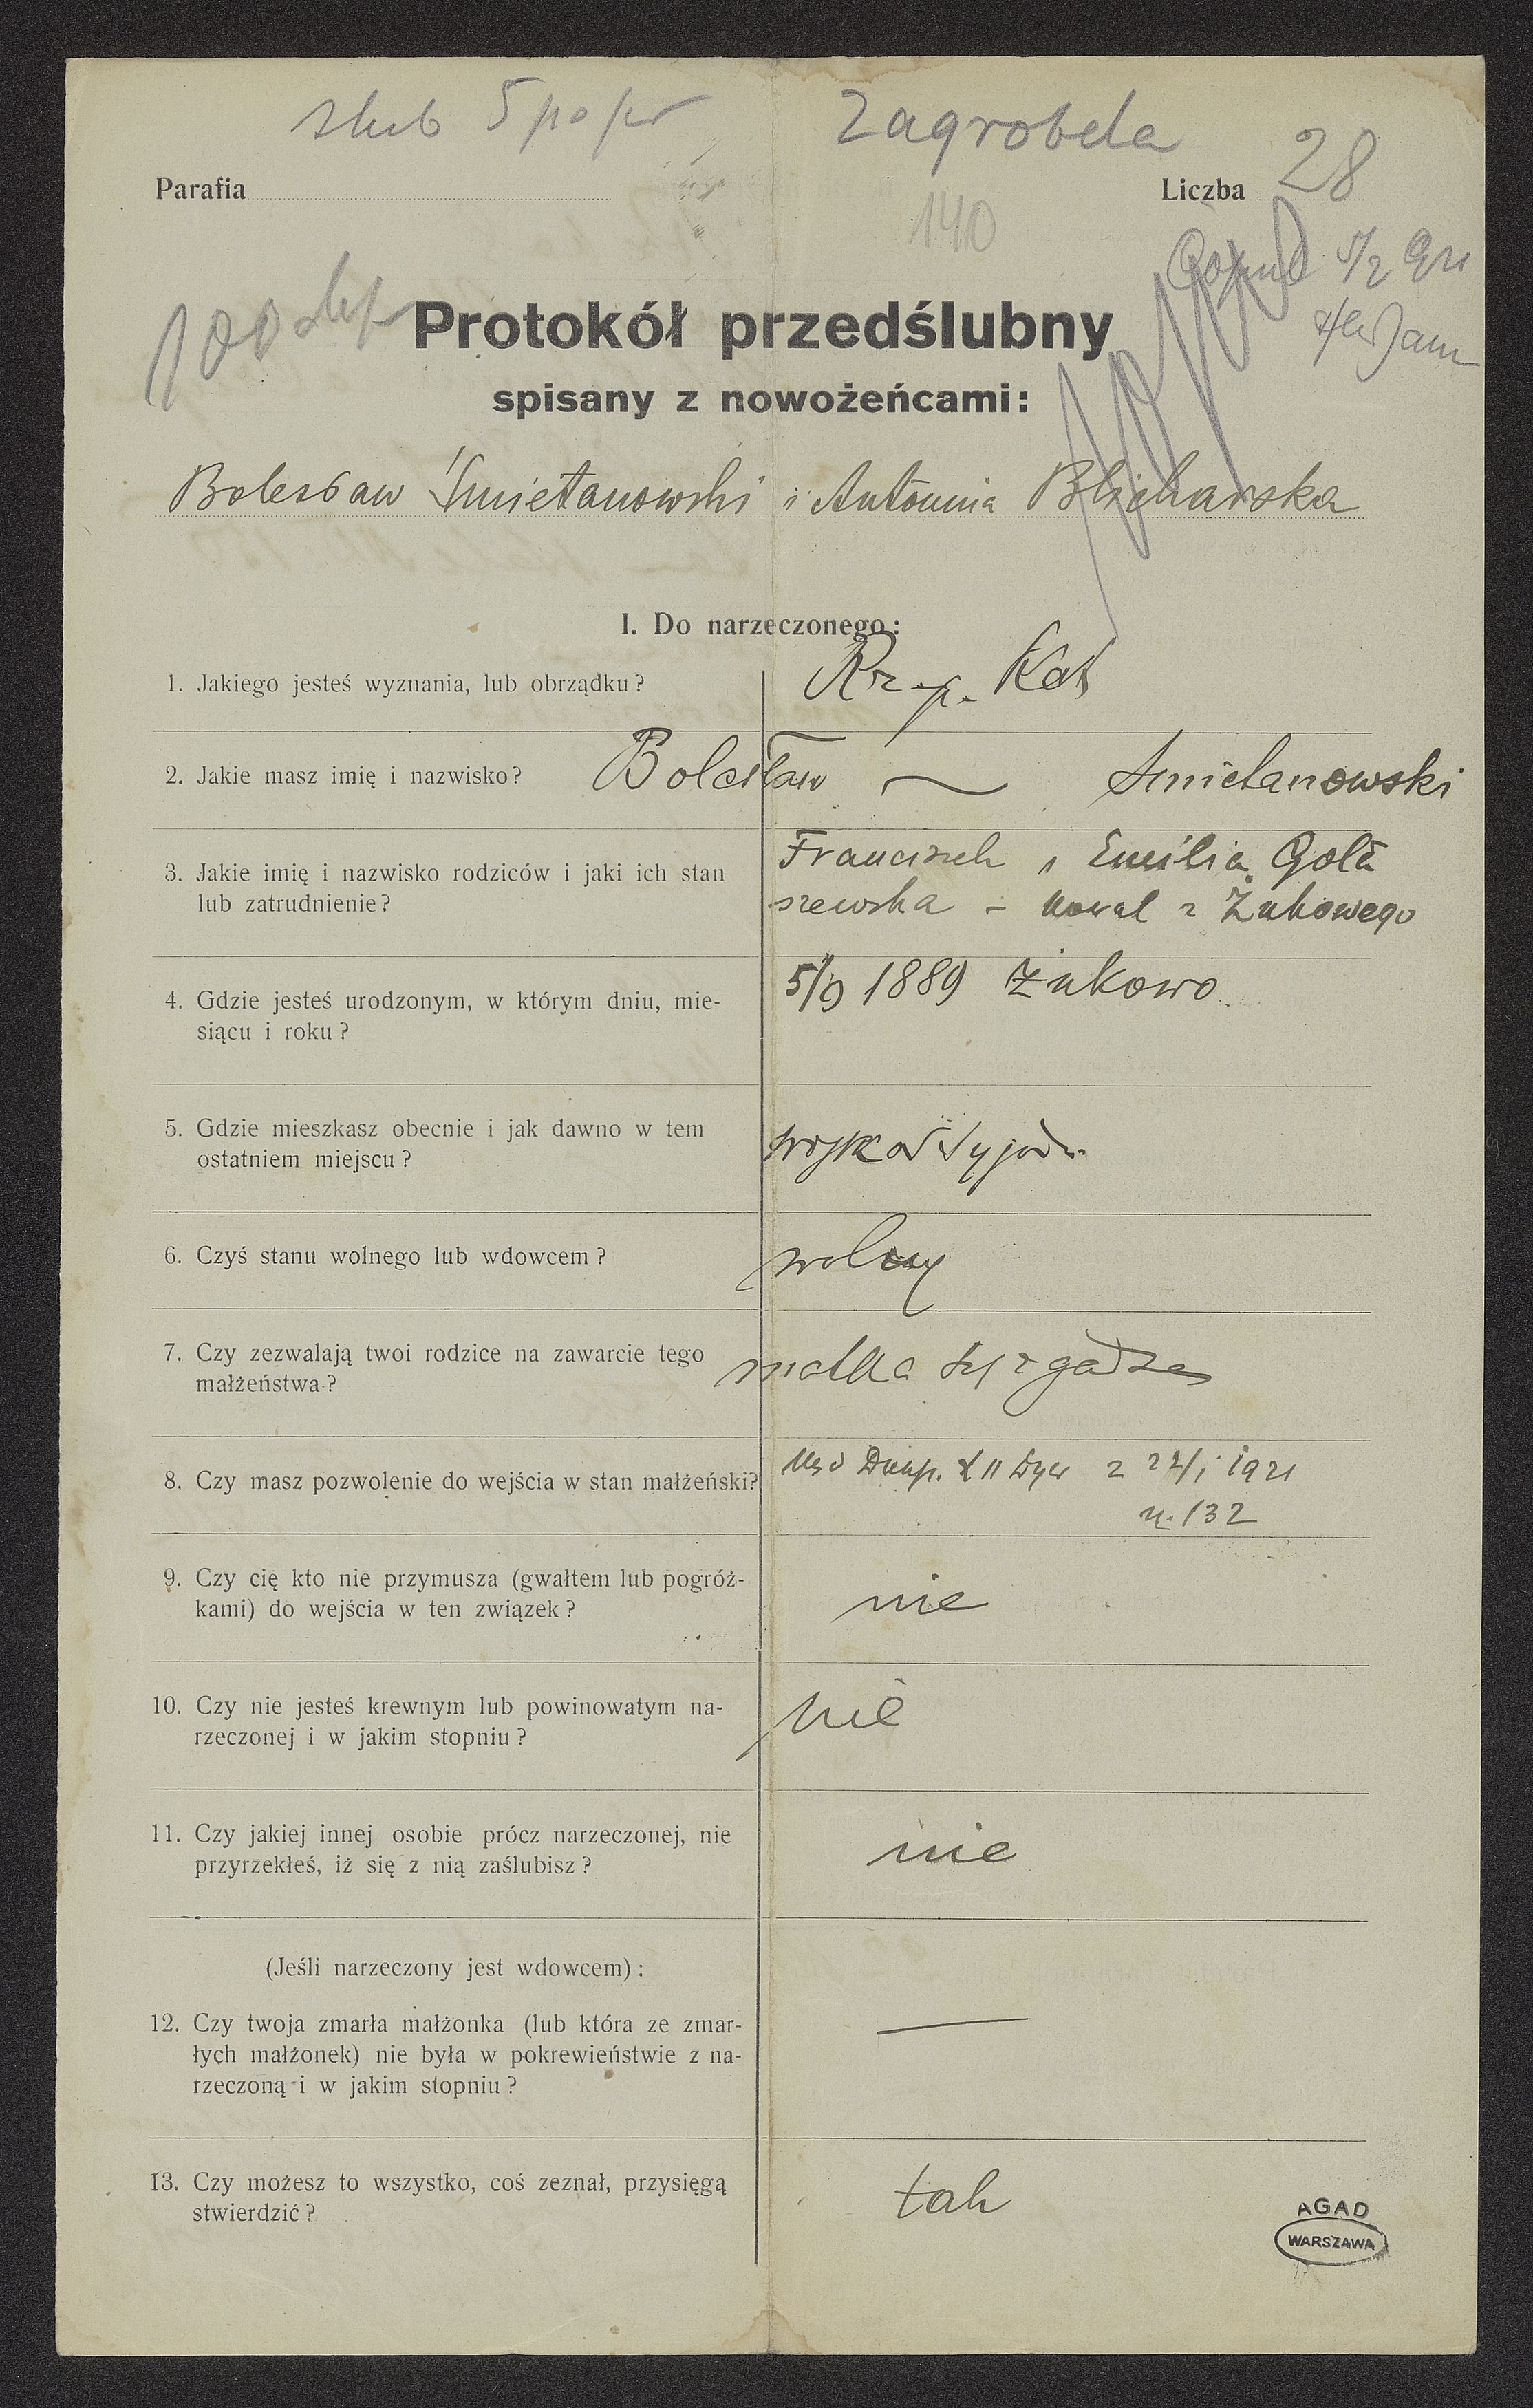 ślub 5 po poł
Zagrobela
Parafia
Liczba 28
140
5/2 921
100
Protokół przedślubny
spisany z nowożeńcami:
Bolesław Śmietanowski i Antonina Blicharska
I. Do narzeczonego:
1. Jakiego jesteś wyznania, lub obrządku?
Rz. Kat
2. Jakie masz imię i nazwisko?
Bolesław Śmietanowski
3. Jakie imię i nazwisko rodziców i jaki ich stan
lub zatrudnienie?
Franciszek i Emilia Goła
szewska – kowal z Żukowego
4. Gdzie jesteś urodzonym, w którym dniu, mie-
siącu i roku?
5/9 1889 Żukowo
5. Gdzie mieszkasz obecnie i jak dawno w tem
ostatniem miejscu?
6. Czyś stanu wolnego lub wdowcem?
wolny
7. Czy zezwalają twoi rodzice na zawarcie tego
małżeństwa?
matka się zgadza
8. Czy masz pozwolenie do wejścia w stan małżeński?
z 22/1 1921
n. 132
9. Czy cię kto nie przymusza (gwałtem lub pogróż-
kami) do wejścia w ten związek?
nie
10. Czy nie jesteś krewnym lub powinowatym na-
rzeczonej i w jakim stopniu?
nie
11. Czy jakiej innej osobie prócz narzeczonej, nie
przyrzekłeś, iż się z nią zaślubisz?
nie
(Jeśli narzeczony jest wdowcem):
12. Czy twoja zmarła małżonka (lub która ze zmar-
łych małżonek) nie była w pokrewieństwie z na-
rzeczoną i w jakim stopniu?
—
13. Czy możesz to wszystko, coś zeznał, przysięgą
stwierdzić?
tak
AGAD
WARSZAWA